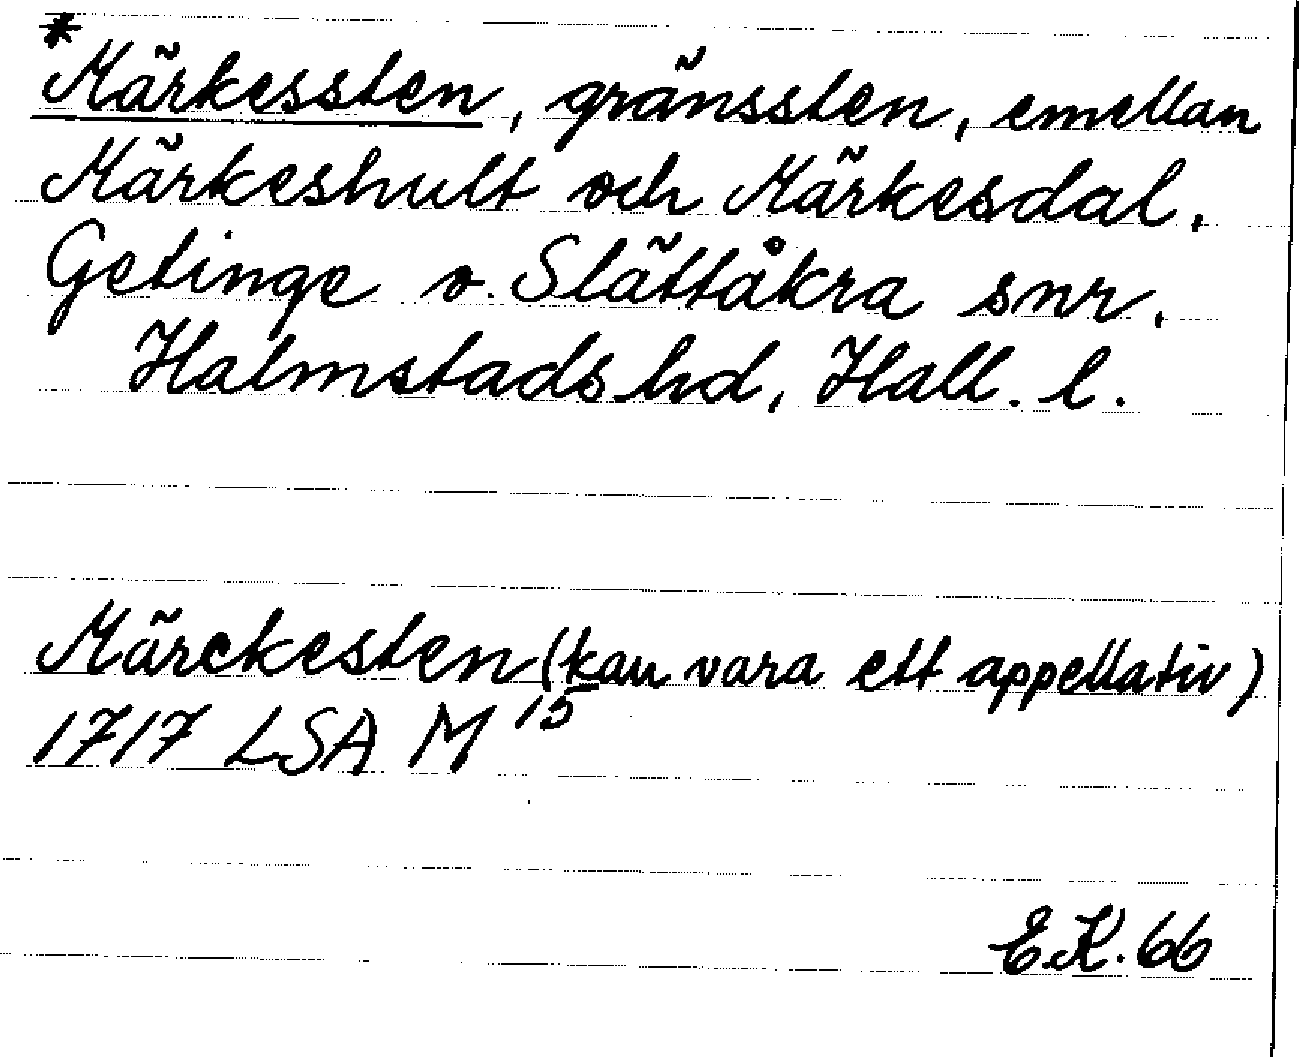 *Märkessten, gränssten, emellan
Märkeshult och Märkesdal.
Getinge o. Slättåkra snr.
Halmstads hd, Hall. l.
Märckesten (kan vara ett appellativ)
1717 LSA M 15
E.K. 66